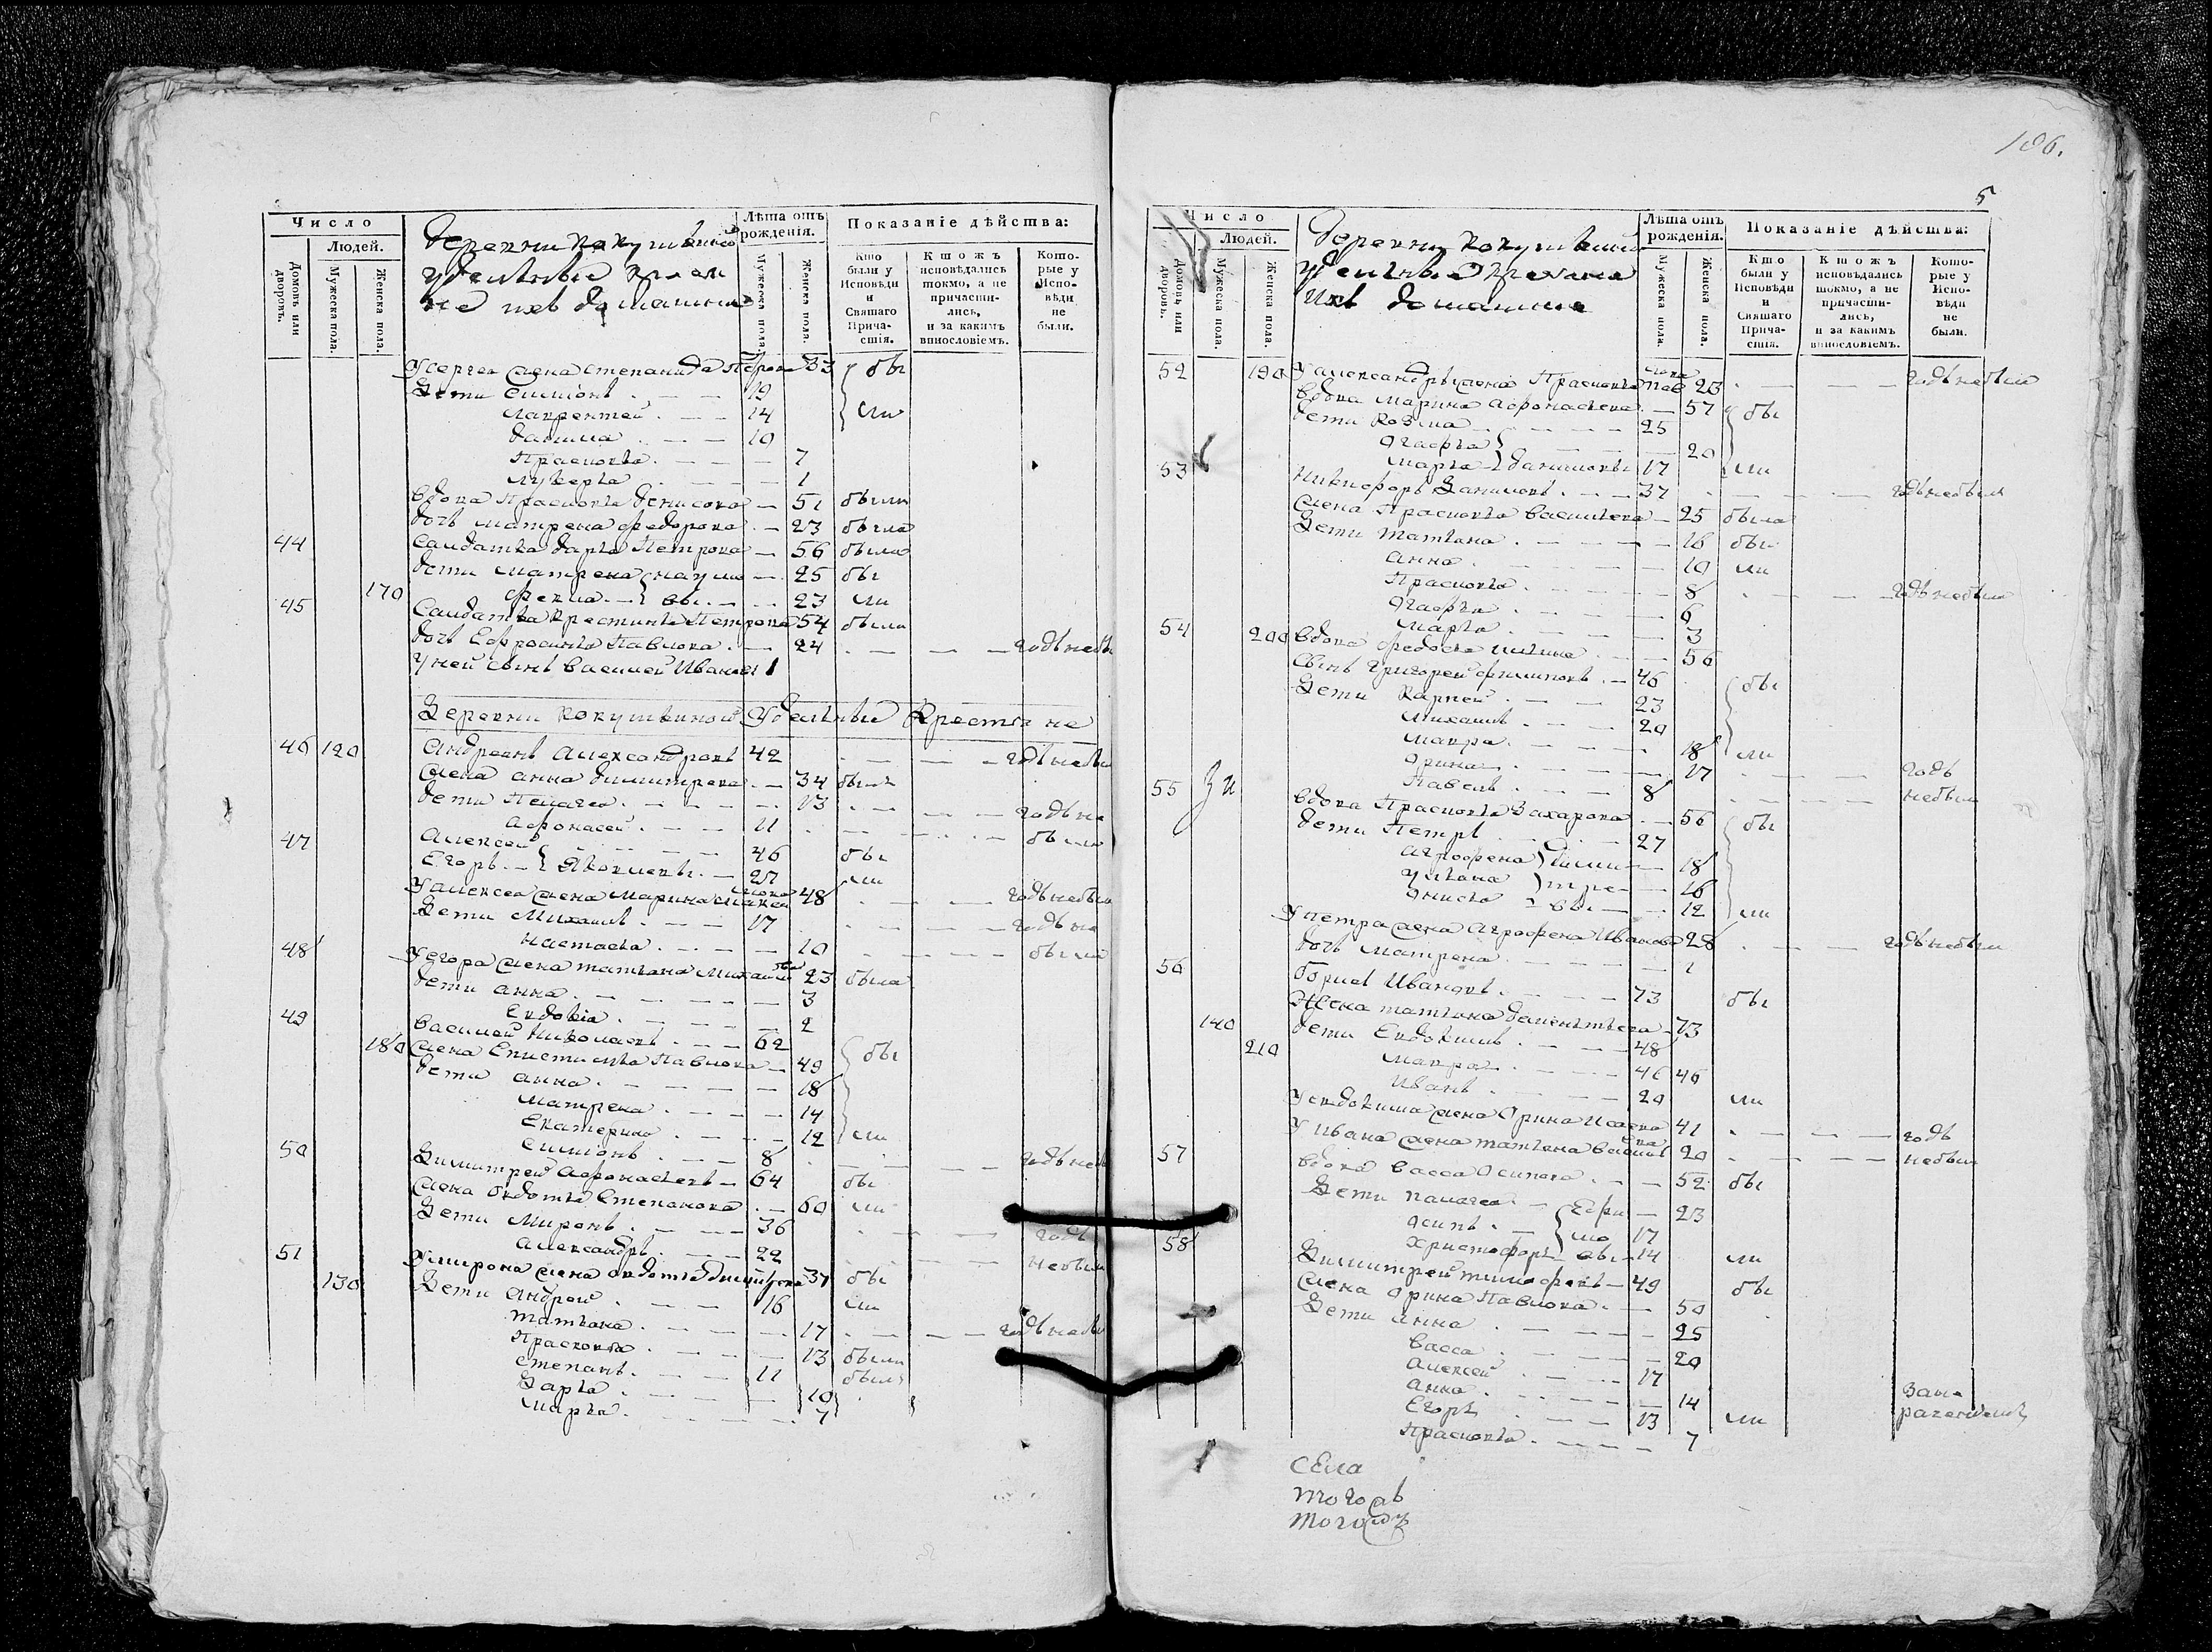 Число
Людей.
Домовъ или дворовъ.
Мужеска пола.
Женска пола.
Деревни Кокушкиной
удѣлныя крестя
не ихъ домашния
Лѣта отъ рожденія.
Мужеска пола.
Женска пола.
Показаніе дѣйства:
Кто были у Исповѣди и Святаго Причастія.
Кто жъ исповѣдались токмо, а не причастились, и за какимъ винословіемъ.
Которые у Исповѣди не были.
У сергея жена степанида Петрова 33 бы
Дети Симионъ 19
Лаврентей 14 ли
данила 10
Прасковья 7
Лукерья 1
вдова Прасковья денисова 51 были
дочь матрена федорова 23 была
44 Салдатка дарья Петрова 56 была
дети матрена науmo 25 бы
170 фекла вы 23 ли
45 Салдатка Крестинья Петрова 54 были
дочь Ефросинья Павлова 24 годъ небы
У ней сынъ василей Ивановъ 1
Деревни Кокушкиной Удельныя Крестьяне
46 120 Андреянъ Александровъ 42 годъ небы
жена анна димитрева 34 была
дети Пелагея 13 годъ не
Афонасей 11 были
47 Алексей 46 бы
Егоръ Яковлевы 27 ли
У алексея жена Марина 48 годъ небыла
Дети Михаилъ 17 годъ не
Настасья 10 были
48 У егора жена татьяна Михайлова 23 была
дети анна 3
Евдокия 2
49 василей Николаевъ 62
180 жена Епистимья Павлова 49 бы
дети анна 18
Матрена 14
Екатерина 12 ли
Симионъ 8 годъ небы
50 Димитрей Афонасьевъ 64 бы
жена овдотья Степанова 60 ли
Дети Миронъ 36 годъ
Александръ 22 небыли
51 У мирона жена овдотья димитрева 37 бы
130 Дети Андрей 16 ли
татьяна 17 годъ небы
Прасковья 13 были
Степанъ 11 былъ
Дарья 10
Марья 7
186.
5
Число
Людей.
Домовъ или дворовъ.
Мужеска пола.
Женска пола.
Деревни Кокушкиной
ихъ домашния
Лѣта отъ рожденія.
Мужеска пола.
Женска пола.
Показаніе дѣйства:
Кто были у Исповѣди и Святаго Причастія.
Кто жъ исповѣдались токмо, а не причастились, и за какимъ винословіемъ.
Которые у Исповѣди не были.
52 190 У александры жена Прасковья 23 годъ небыла
вдова марина Афонасьева 57 бы
дети Козма 25
Агафья 20
Марья даниловы 17 ли
53 Никифоръ Даниловъ 37 годъ небылъ
жена Прасковья васильева 25 была
Дети татьяна 16 бы
анна 10 ли
Прасковья 8 годъ небыла
Агафья 6
Марья 3
54 200 вдова федосья 56
Сынъ григорей филиповъ 46 бы
Дети Карпей 23
Михаилъ 20
Мавра 18 ли
Орина 17 годъ
Павелъ 8 небыли
55 вдова Прасковья Захарова 56 бы
дети Петръ 27
Агрофена дими 18
Ульяна тре 16
Анисья вы 12 ли
У петра жена Агрофена Иванова 28 годъ небыла
дочь Матрена 1
56 борисъ Ивановъ 73 бы
Жена татьяна 73
140 дети Евдокимъ 48
210 Мавра 46 46
Иванъ 20 ли
У евдокима жена Орина Исаева 41 годъ
У ивана жена татьяна 20 небыли
57 вдова васса Осипова 52 бы
Дети палагея Ефи 23
Осипъ мо 17
Христофоръ вы 14 ли
58 Димитрей тимофеевъ 49 бы
жена Орина Павлова 50
Дети Анна 25
васса 20
Алексей 17
анна 14
Егоръ 13 ли
Прасковья 7
СЕла
тогожъ